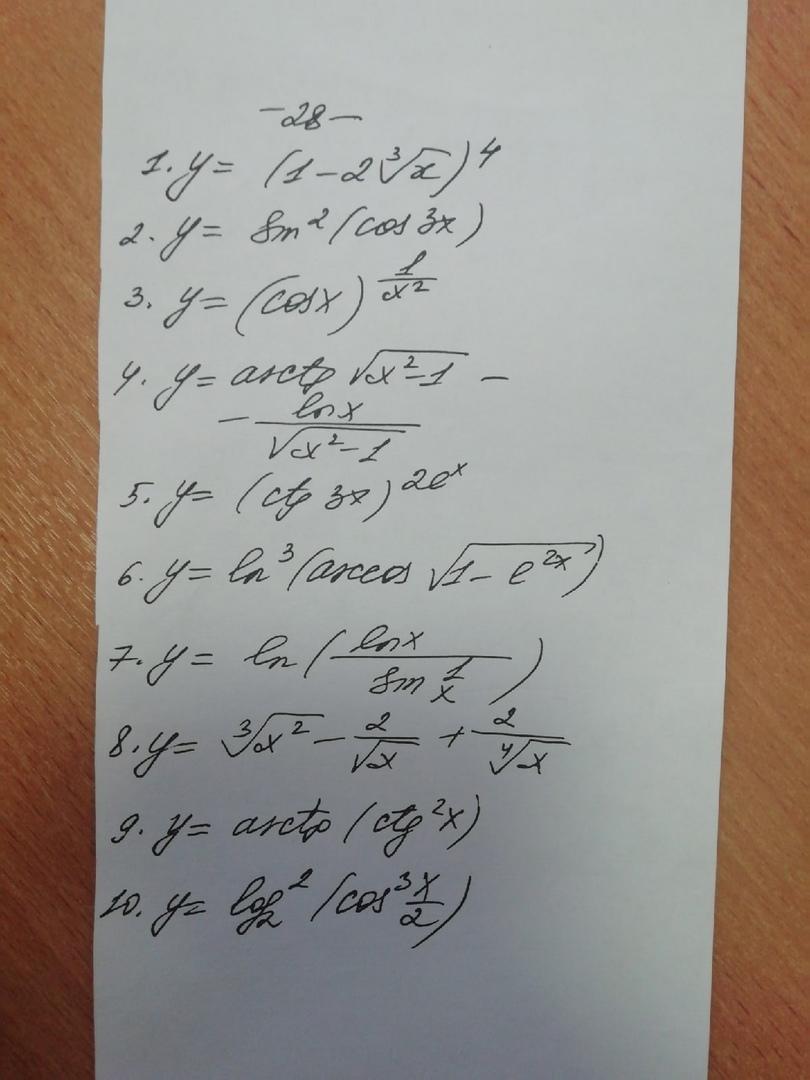 -28-
1. y = (1-2∛x)⁴
2. y = sin²(cos 3x)
3. y = (cosx)^(1/x²)
4. y = arctg √(x²-1) -
- lnx/√(x²-1)
5. y = (ctg 3x)^(2eˣ)
6. y = ln³(arccos √(1-e²ˣ))
7. y = ln(lnx/(sin 1/x))
8. y = ∛x² - 2/√x + 2/∜x
9. y = arctg(ctg²x)
10. y = log₂²(cos³ x/2)